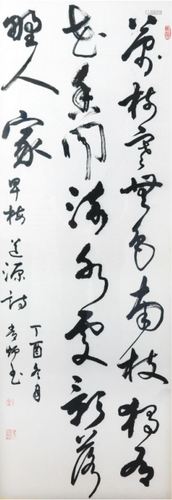 萬樹寒無色南枝獨有
花香聞流水處影落
野人家 早梅 道源詩
丁酉冬月
书